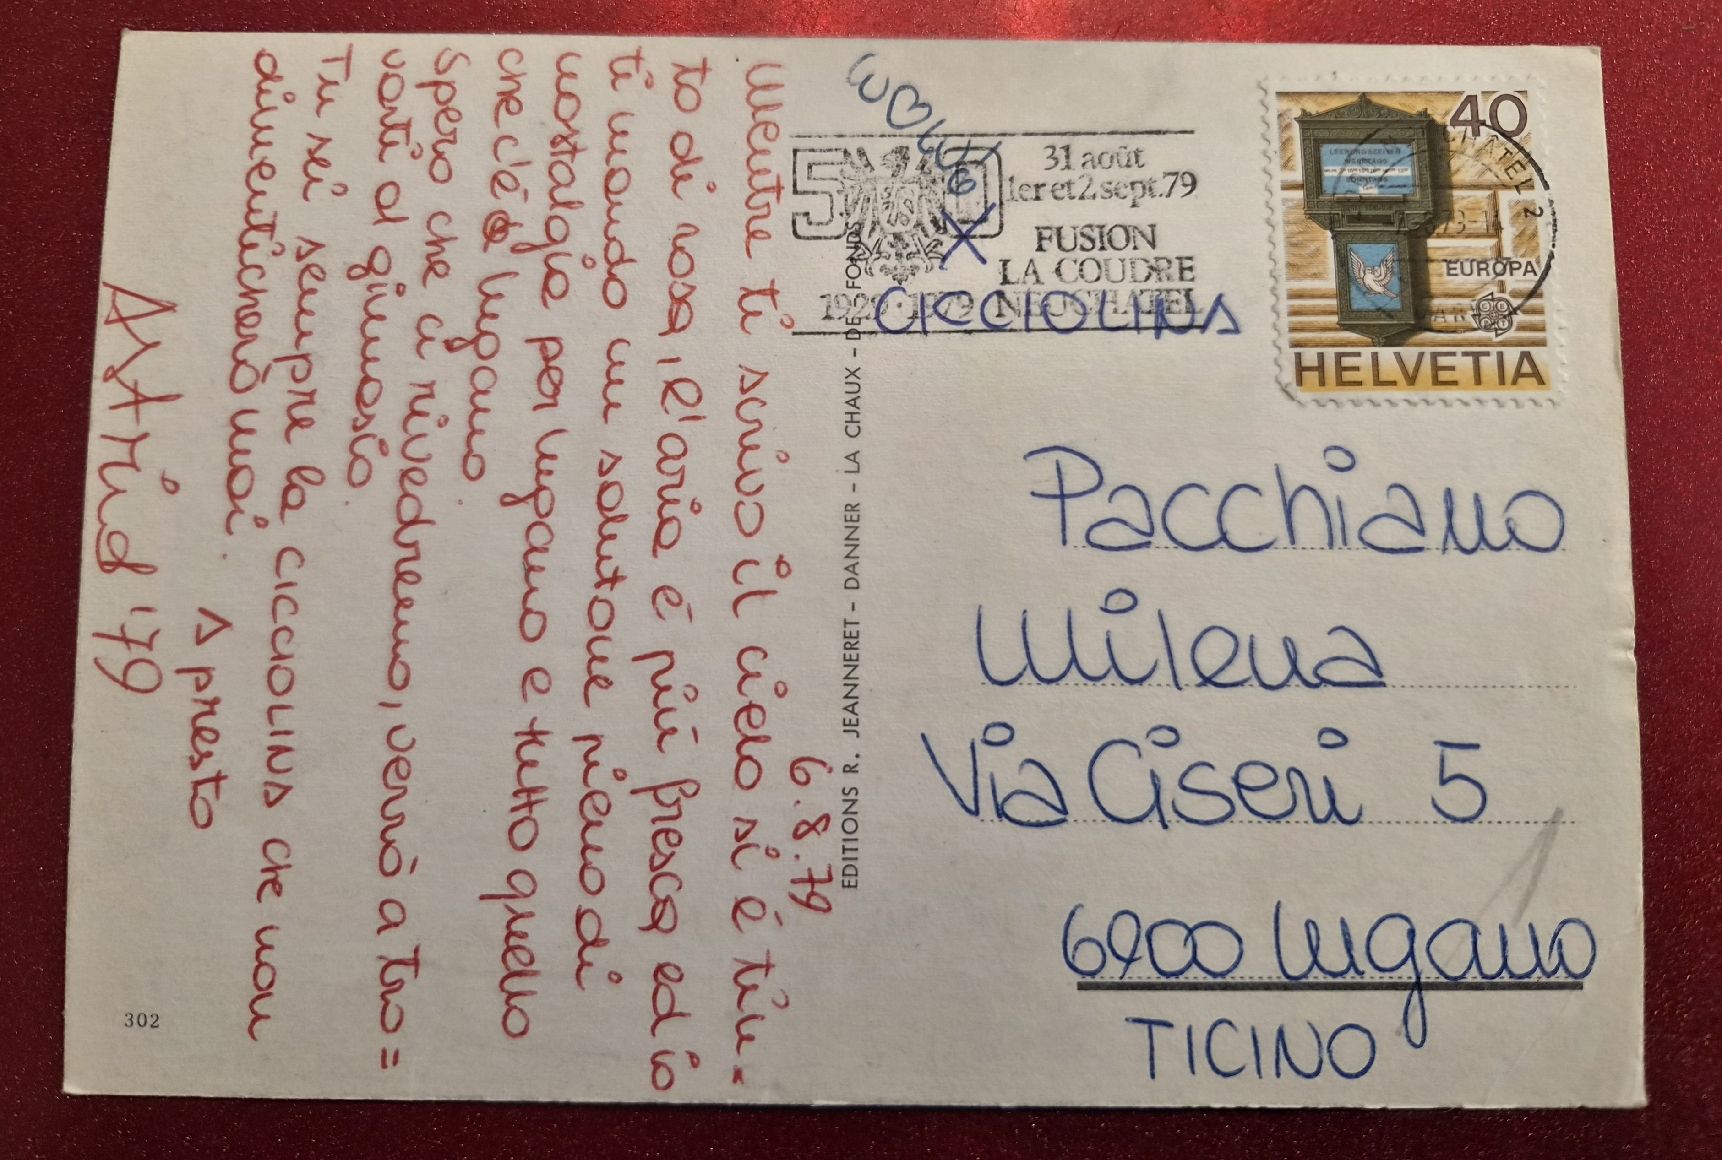 6.8.79
Mentre ti scrivo il cielo si è tin-
to di rosa, l'aria è più fresca ed io
ti mando un salutone pieno di
nostalgia per Lugano e tutto quello
che c'è a Lugano
Spero che ci rivedremo, verrò a tro=
varti al ginnasio
Tu sei sempre la CICCIOLINA che non
dimenticherò mai.
A presto
Astrid '79
302
EDITIONS R. JEANNERET - DANNER - LA CHAUX - DE - FONDS
50
1929 · 1979
31 août
1er et 2 sept. 79
FUSION
LA COUDRE
NEUCHATEL
X
CICCIOLINA
40
EUROPA
HELVETIA
Pacchiano
Milena
Via Ciseri 5
6900 Lugano
TICINO